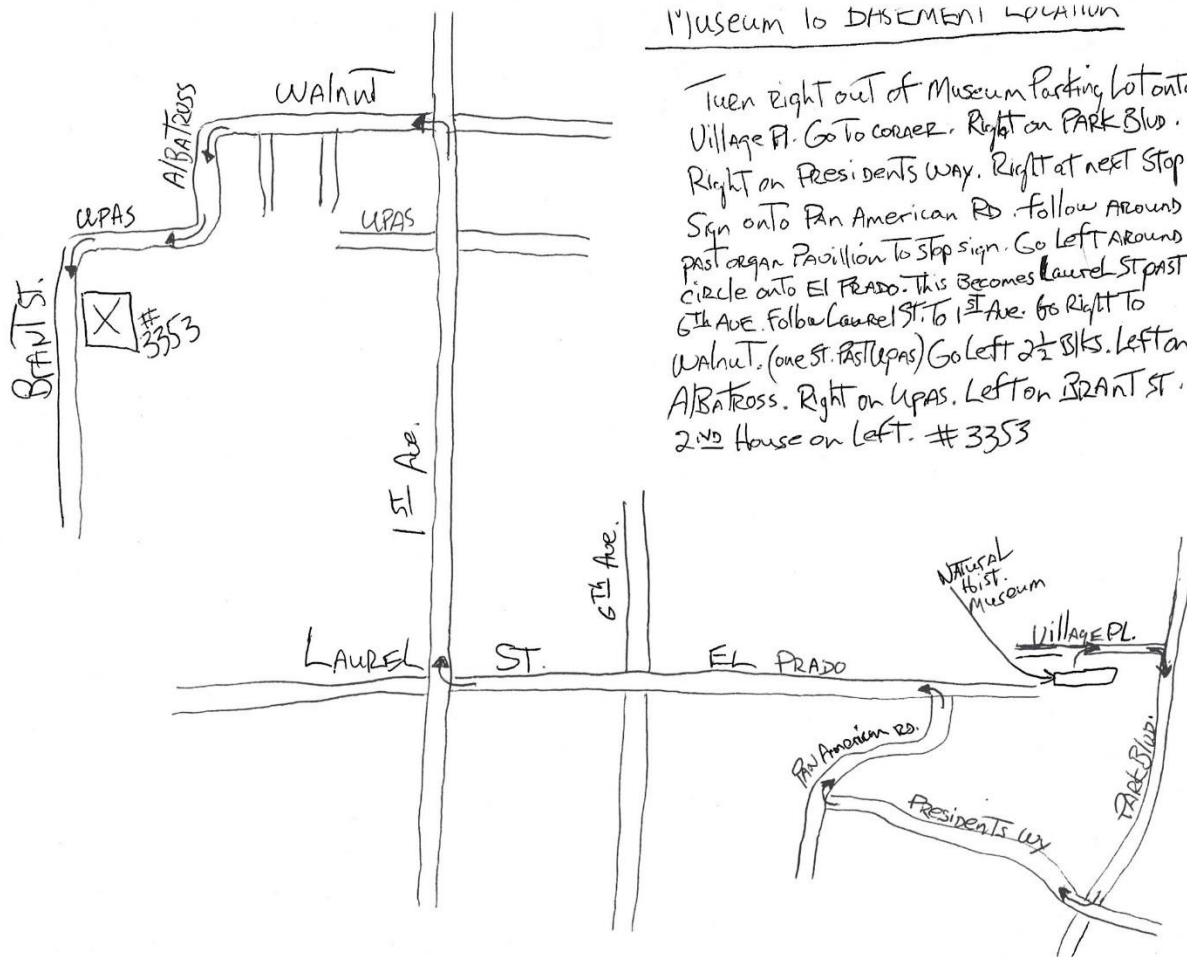 Museum to BASEMENT LOCATION
Turn Right out of Museum Parking Lot onto
Village Pl. Go To corner. Right on PARK Blvd.
Right on Presidents Way. Right at next Stop
Sign onto Pan American RD. follow Around
past organ Pavillion To Stop sign. Go Left Around
circle onto El Prado. This Becomes Laurel St past
6th Ave. Follow Laurel St. To 1st Ave. Go Right To
Walnut. (one St. Past Upas) Go Left 2½ Blks. Left on
Albatross. Right on Upas. Left on BRANT ST.
2ND House on Left. # 3353
WAlnut
AlBATROSS
UPAS
UPAS
BRANT ST.
X
# 3353
1ST Ave.
6Th Ave.
NATURAL
Hist.
Museum
VillAGE PL.
LAUREL ST.
EL PRADO
PAN American RD.
PARK Blvd.
PresidenTs Wy